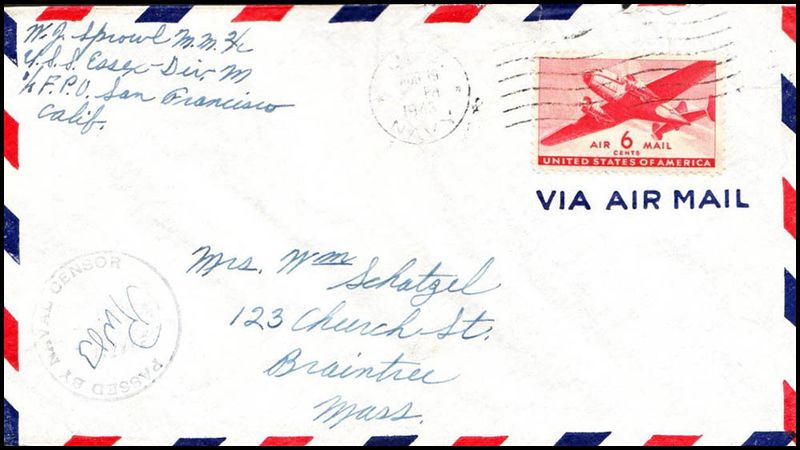 W. J. Sprowl M.M. 2/c
U.S.S. Essex - Div. M
c/o F.P.O. San Francisco
Calif.
19
1943
NAVY
AIR 6 MAIL
CENTS
UNITED STATES OF AMERICA
VIA AIR MAIL
Mrs. Wm Schatzel
123 Church St.
Braintree
Mass.
PASSED BY NAVAL CENSOR